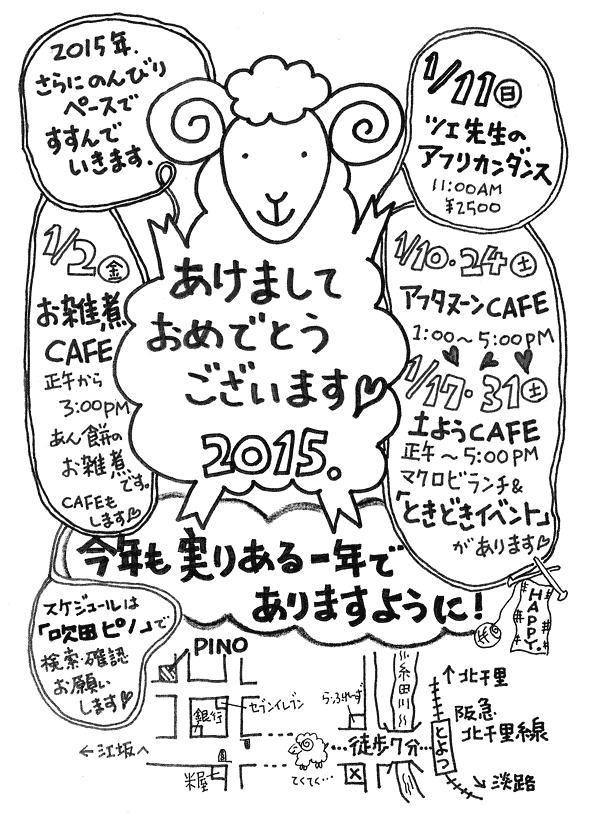 2015年、
さらにのんびり
ペースで
すすんで
いきます.
1/11(日)
ツェ先生の
アフリカンダンス
11:00AM
¥2500
1/2(金)
お雑煮
CAFE
正午から
3:00PM
あん餅の
お雑煮
です。
CAFEも
します♡
あけまして
おめでとう
ございます♡
2015.
1/10・24(土)
アフタヌーンCAFE
1:00〜5:00PM
1/17・31(土)
土ようCAFE
正午〜5:00PM
マクロビランチ&
「ときどきイベント」
があります♡
今年も実りある一年で
ありますように!
HAPPY
スケジュールは
「吹田ピノ」で
検索・確認
お願い
します♡
PINO
セブンイレブン
銀行
←江坂へ
米屋
ら・ふれーず
糸田川
てくてく…
…徒歩7分…
とよつ
↑北千里
阪急
北千里線
↘淡路